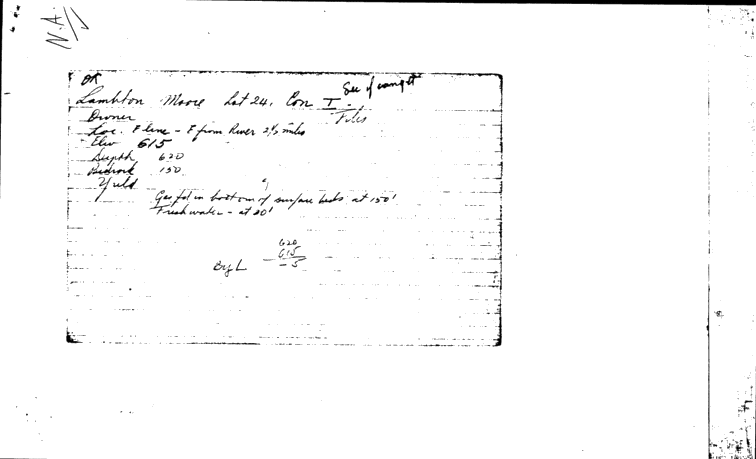 N.A.
OK
See if can get
Lambton Moore Lot 24, Con I -
Files
Owner
Loc. F line - E from River 2½ miles
Elev 615
Depth 620
Bedrock 150
Yield
Gas fd in bottom of surface beds at 150'
Fresh water - at 20'
620
615
- 5